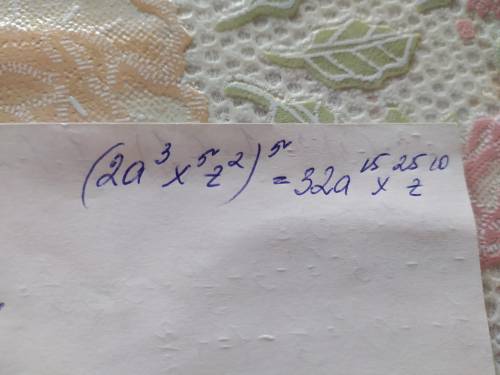 (2a³x⁵z²)⁵=32a¹⁵x²⁵z¹⁰